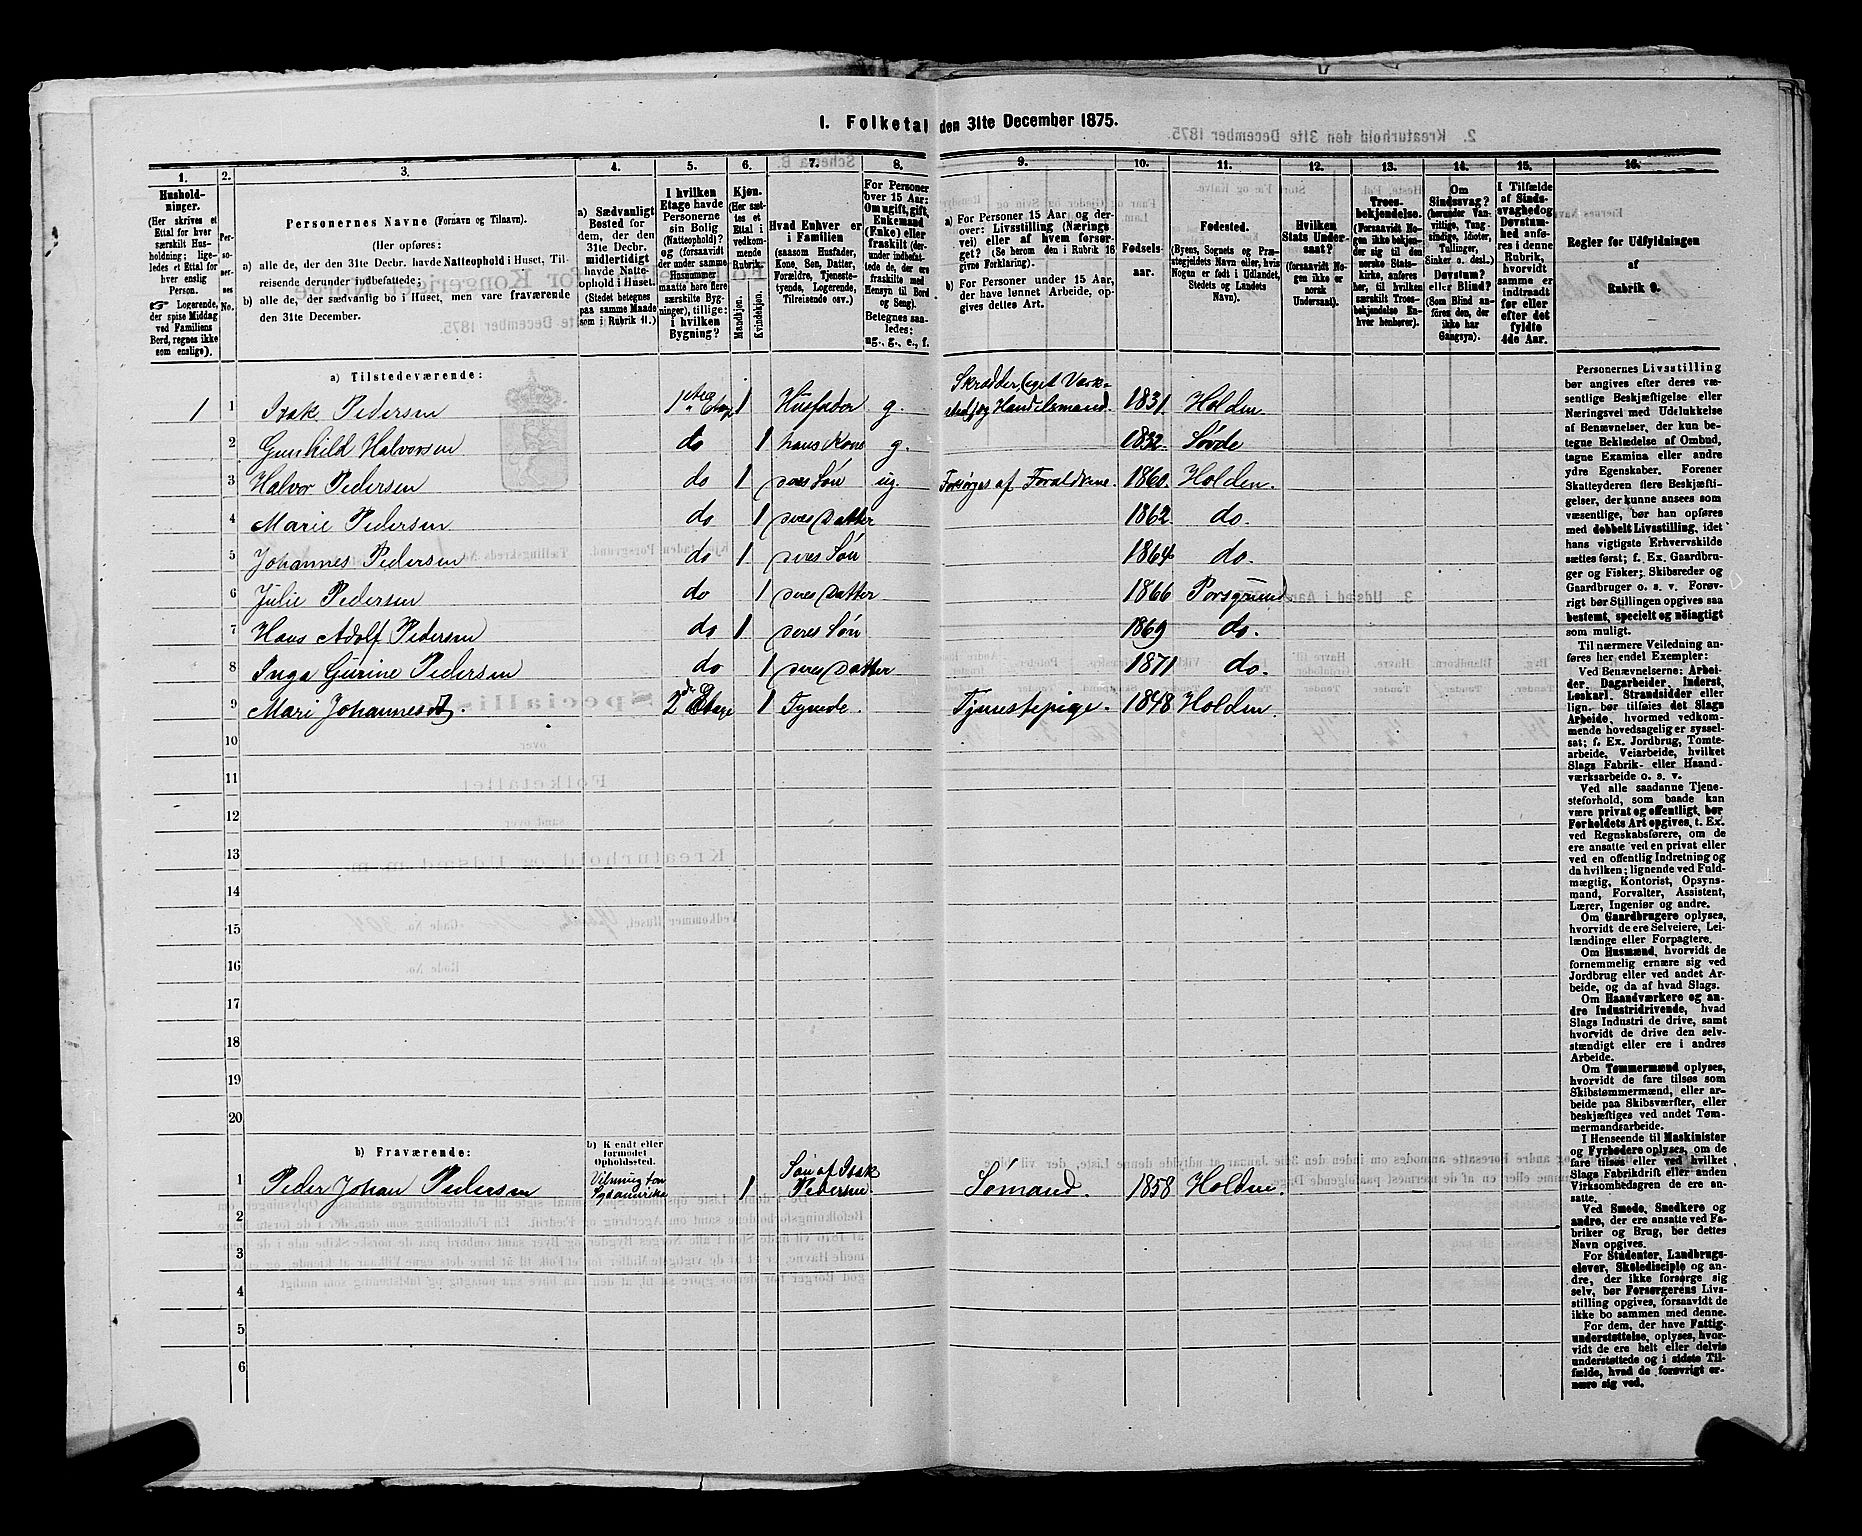 I. Folketal den 31te December 1875.
1. 2. 3. 4. 5. 6. 7. 8. 9. 10. 11. 12. 13. 14. 15. 16.
Hushold-
ninger.
(Her skrives et
Ettal for hver
særskilt Hus-
holdning; lige-
ledes et Ettal for
hver enslig
Person.
☞ Logerende,
der spise Middag
ved Familiens
Bord, regnes ikke
som enslige).
Per-
so-
ner-
nes
No.
Personernes Navne (Fornavn og Tilnavn).
(Her opføres:
a) alle de, der den 31te Decbr. havde Natteophold i Huset, Til-
reisende derunder indbefattede;
b) alle de, der sædvanlig bo i Huset, men vare fraværende
den 31te December.
a) Sædvanligt
Bosted for
dem, der den
31te Decbr.
midlertidigt
havde Natte-
ophold i Huset.
(Stedet betegnes
paa samme Maade
som i Rubrik 11.)
I hvilken
Etage havde
Personerne
sin Bolig
(Natteophold)?
og (forsaavidt
der under samme
Husnummer
maatte høre flere
særskilte Byg-
ninger), tillige:
i hvilken
Bygning?
Kjøn.
(Her sæt-
tes et
Ettal i
vedkom-
mende
Rubrik.)
Mandkjøn.
Kvindekjøn.
Hvad Enhver er
i Familien
(saasom Husfader,
Kone, Søn, Datter,
Forældre, Tjeneste-
tyende, Logerende,
Tilreisende osv.)
For Personer
over 15 Aar:
Om ugift, gift,
Enkemand
(Enke) eller
fraskilt (der-
under indbefat-
tede de, der ere
fraskilte med
Hensyn til Bord
og Seng).
Betegnes saa-
ledes:
ug., g., e., f.
a) For Personer 15 Aar og der-
over: Livsstilling (Nærings-
vei) eller af hvem forsør-
get. (Se herom den i Rubrik 16
givne Forklaring).
b) For Personer under 15 Aar,
der have lønnet Arbeide, op-
gives dettes Art.
Fødsels-
aar.
Fødested.
(Byens, Sognets og Præ-
stegjeldets Navn eller, hvis
Nogen er født i Udlandet,
Stedets og Landets
Navn).
Hvilken
Stats Under-
saat?
(forsaavidt No-
gen ikke er
norsk
Undersaat).
Troes-
bekjendelse.
(Forsaavidt No-
gen ikke bekjen-
der sig til den
norske Stats-
kirke, anføres
her, til hvilken
særskilt Troes-
bekjendelse En-
hver henhører).
Om
Sindssvag?
(herunder Van-
vittige, Tung-
sindige, Idioter,
Tullinger,
Sinker o. desl.)
Døvstum?
eller Blind?
(Som Blind an-
føres den, der
ikke har
Gangsyn).
I Tilfælde
af Sinds-
svaghed og
Døvstum-
hed anfø-
res i denne
Rubrik,
hvorvidt
samme er
indtraadt
før eller
efter det
fyldte
4de Aar.
Regler for Udfyldningen
af
Rubrik 9.
a) Tilstedeværende:
1 1 Isak Pedersen 1ste Etage 1 Husfader g. Skrædder, (eget Værk-
sted) og Handelsmand. 1831. Holden
2 Gunhild Halvorsen do 1 hans Kone g. 1832. Sövde
3 Halvor Pedersen do 1 deres Sön ug. Forsörges af Foraldrene. 1860. Holden.
4 Marie Pedersen do 1 deres Datter 1862. do.
5 Johannes Pedersen do 1 deres Sön 1864 do.
6 Julie Pedersen do 1 deres Datter 1866 Porsgrund
7 Hans Adolf Pedersen do 1 deres Sön 1869 do.
8 Inga Gurine Pedersen do 1 deres Datter 1871 do.
9 Mari Johannesd. 2den Etage 1 Tyende. Tjenestepige. 1848 Holden.
10
11
12
13
14
15
16
17
18
19
20
b) Fraværende:
b) Kendt eller
formodet
Opholdssted.
1 Peder Johan Pedersen 1 Sön af Isak
Pedersen Sömand. 1858 Holden
2
3
4
5
6
Personernes Livsstilling
bør angives efter deres væ-
sentlige Beskjæftigelse eller
Næringsvei med Udelukkelse
af Benævnelser, der kun be-
tegne Beklædelse af Ombud,
tagne Examina eller andre
ydre Egenskaber. Forener
Skatteyderen flere Beskjæfti-
gelser, der kunne ansees som
væsentlige, bør han opføres
med dobbelt Livsstilling, idet
hans vigtigste Erhvervskilde
sættes først; f. Ex. Gaardbru-
ger og Fisker; Skibsreder og
Gaardbruger o. s. v. Forøv-
rigt bør Stillingen opgives saa
bestemt, specielt og nøiagtigt
som muligt.
Til nærmere Veiledning an-
føres her endel Exempler:
Ved Benævnelserne: Arbei-
der, Dagarbeider, Inderst,
Løskarl, Strandsidder eller
lign. bør tilføies det Slags
Arbeide, hvormed vedkom-
mende hovedsagelig er syssel-
sat; f. Ex. Jordbrug, Tomte-
arbeide, Veiarbeide, hvilket
Slags Fabrik- eller Haand-
værksarbeide o. s. v.
Ved alle saadanne Tjene-
steforhold, som baade kan
være privat og offentligt, bør
Forholdets Art opgives, t. Ex.
ved Regnskabsførere, om de
ere ansatte ved en privat eller
ved en offentlig Indretning og
da hvilken; lignende ved Fuld-
mægtig, Kontorist, Opsyns-
mand, Forvalter, Assistent,
Lærer, Ingeniør og andre.
Om Gaardbrugere oplyses,
hvorvidt de ere Selveiere, Lei-
lændinge eller Forpagtere.
Om Husmænd, hvorvidt de
fornemmelig ernære sig ved
Jordbrug eller ved andet Ar-
beide, og da af hvad Slags.
Om Haandværkere og an-
dre Industridrivende, hvad
Slags Industri de drive, samt
hvorvidt de drive den selv-
stændigt eller ere i andres
Arbeide.
Om Tømmermænd oplyses,
hvorvidt de fare tilsøs som
Skibstømmermænd, eller ar-
beide paa Skibsværfter, eller
beskjæftiges ved andet Tøm-
mermandsarbeide.
I Henseende til Maskinister
og Fyrbødere oplyses, om de
fare tilsøs eller ved hvilket
Slags Fabrikdrift eller anden
Virksomhedsgren de ere an-
satte.
Ved Smede, Snedkere og
andre, der ere ansatte ved Fa-
briker og Brug, bør dettes
Navn opgives.
For Studenter, Landbrugs-
elever, Skoledisciple og an-
dre, der ikke forsørge sig
selv, bør Forsørgerens Livs-
stilling opgives, forsaavidt de
ikke bo sammen med denne.
For dem, der have Fattig-
understøttelse, oplyses, hvor-
vidt de ere helt eller delvis
understøttede og i sidste Til-
fælde, hvad de forøvrigt er-
nære sig ved.